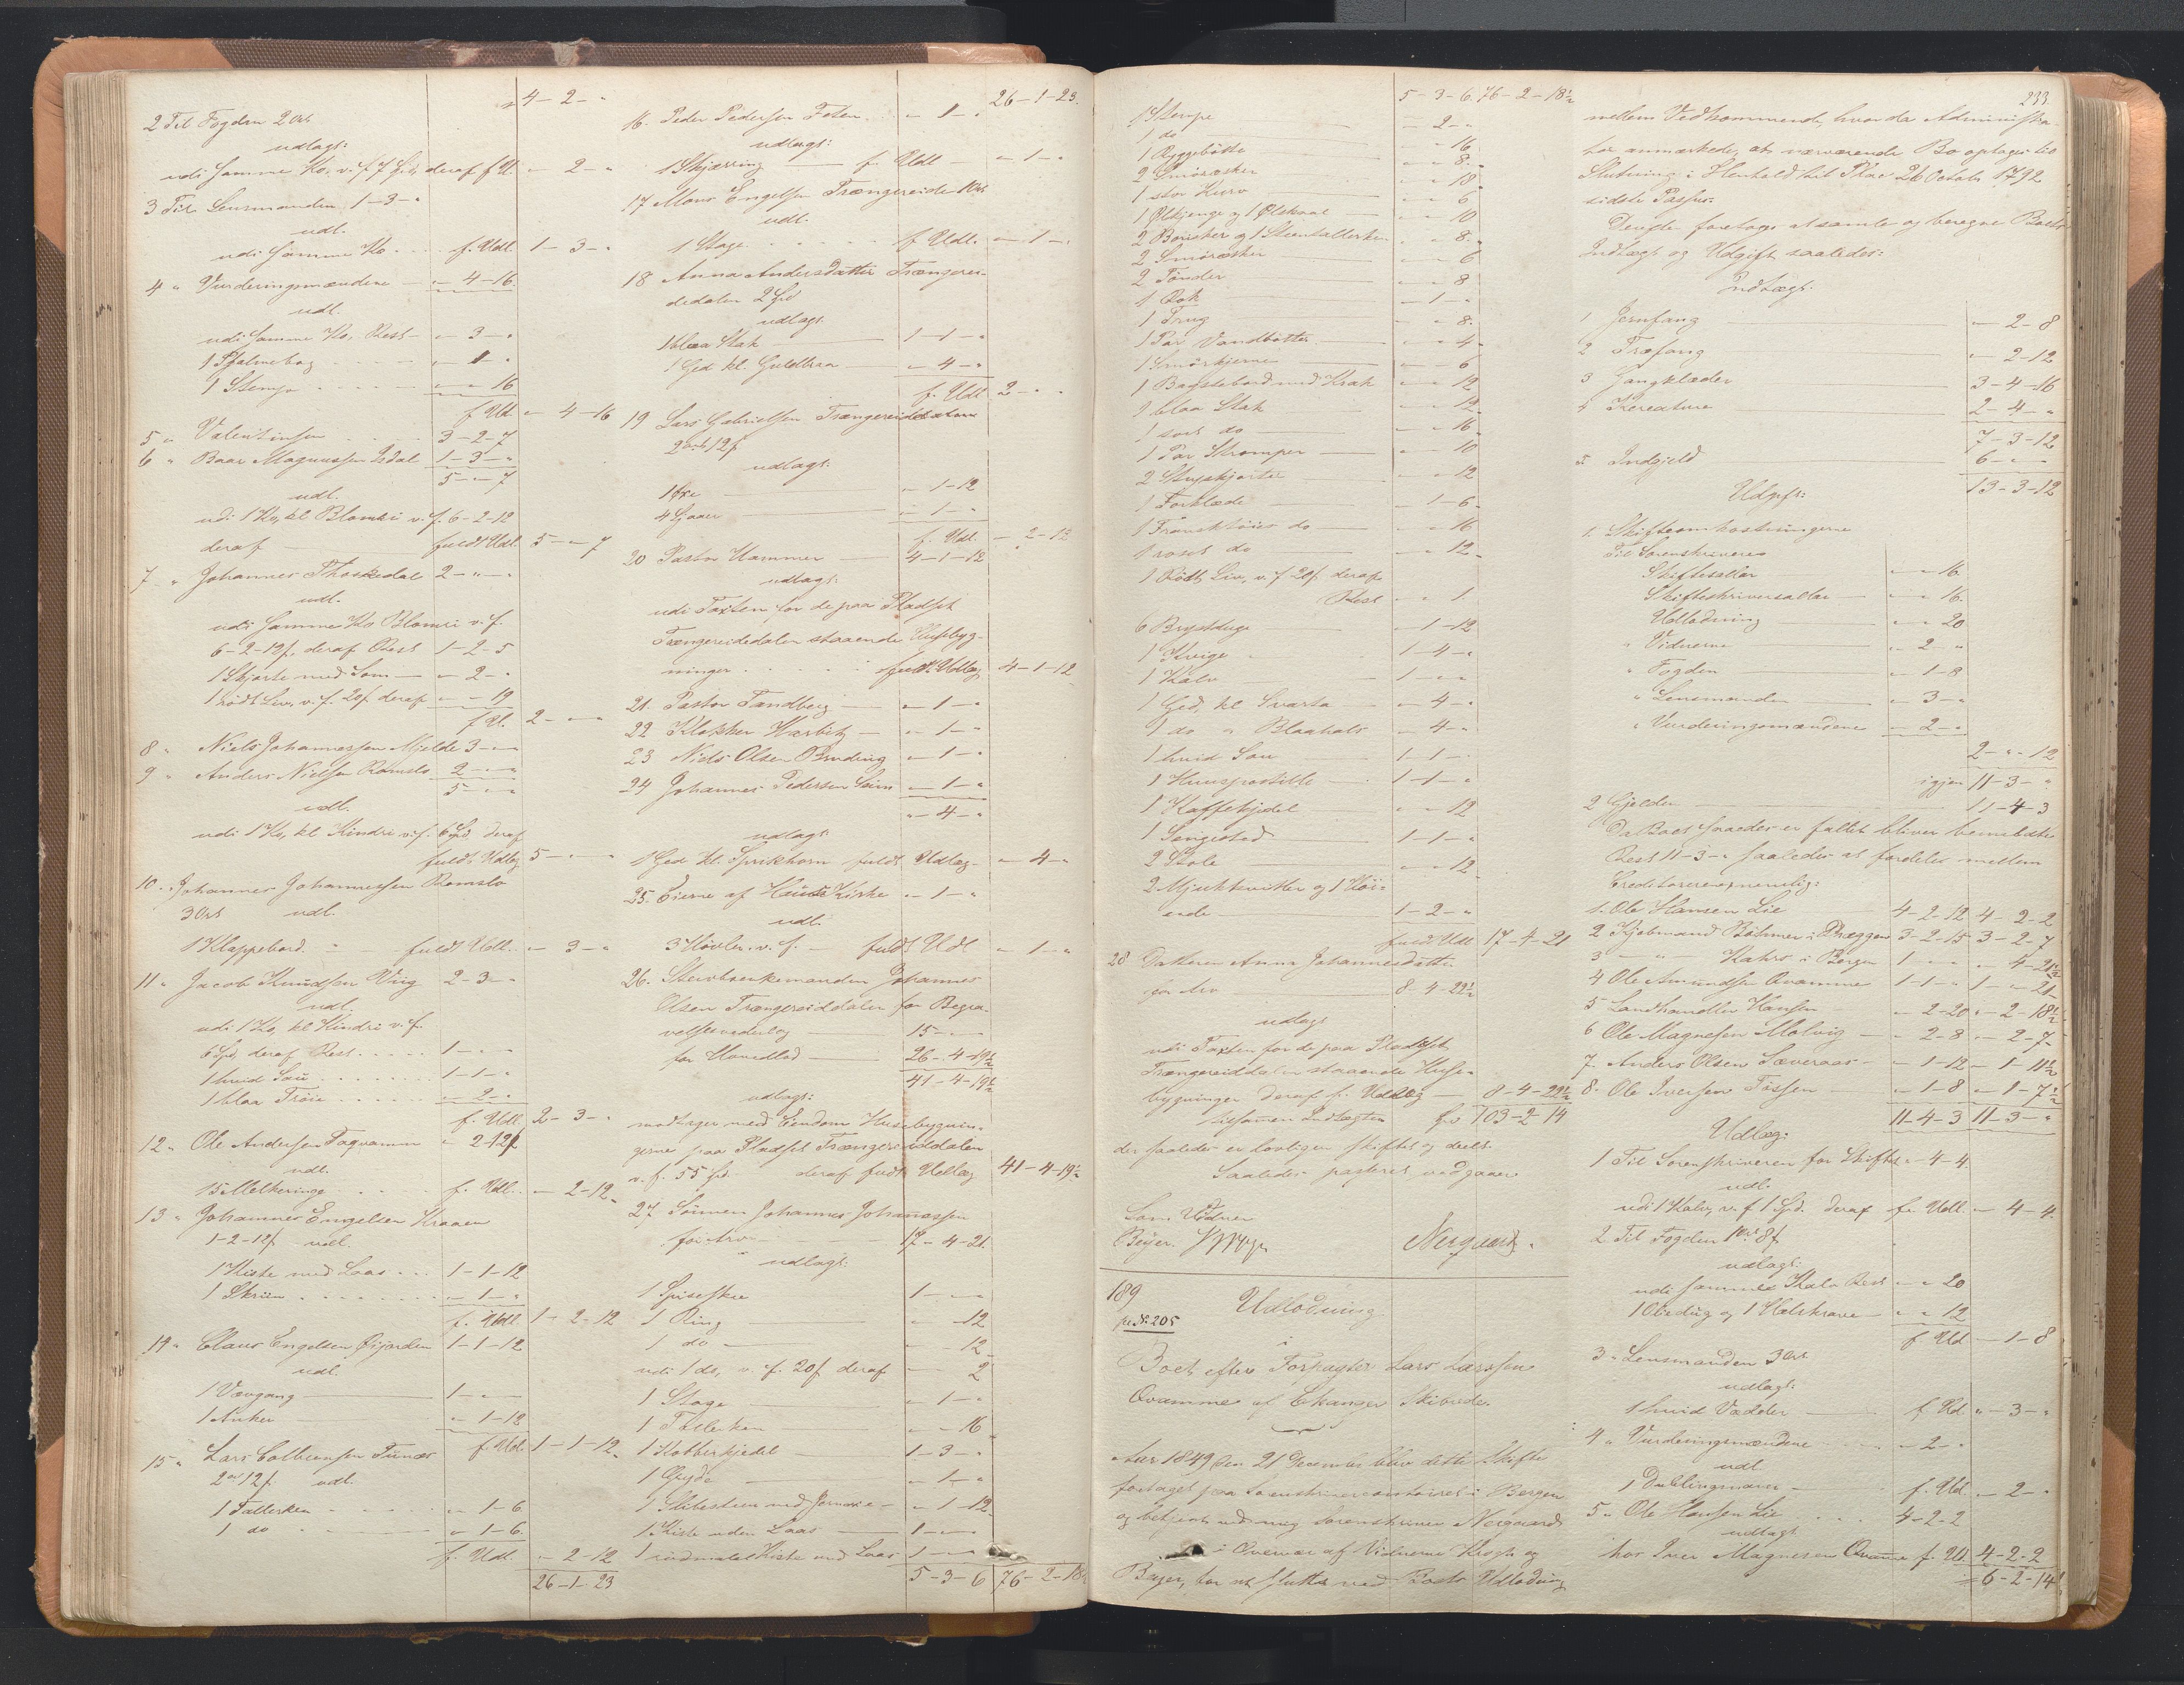 4-2-"
2 Til Fogden 2 Ort
udlagt:
udi samme Ko, v. f. 7 Spd, deraf f Ul. " 2 "
3 Til Lensmanden 1-3-"
udl.
udi samme Ko . . f. Udl. 1-3-"
4 " Vurderingsmændene "-4-16.
udl.
udi samme Ko, Rest "-3-"
1 Psalmebog "-1-"
1 Stempe "-"-16
f Ud. "-4-16
5 " Valentinsen 3-2-7
6 " Baar Magnussen Isdal 1-3-"
5-"-7
udl.
udi 1 Ko, kl Blomri v. f. 6-2-12
deraf fuldt Udl. 5-"-7
7 " Johannes Thoskedal 2-"-"
udl.
udi samme Ko Blomri v. f.
6-2-12f, deraf Rest 1-2-5
1 Skjorte med Som "-2-"
1 rødt Liv, v. f. 20f deraf "-"-19
f Ul. 2-"-"
8 " Niels Johannessen Mjelde 3-"-"
9 " Anders Nielsen Romslo 2-"-"
5-"-"
udl.
udi 1 Ko, kl Kindri v. f. 6 Spd, deraf
fuldt Udlæg 5-"-"
10 " Johannes Johannessen Romslo
3 Ort udl.
1 Klappebord " fuldt Udl. "-3-"
11 " Jacob Knudsen Viig 2-3-"
udl.
udi 1 Ko, kl Kindri v. f.
6 Spd, deraf Rest 1-"-"
1 hvid Sau 1-1-"
1 blaa Trøie "-2-"
f. Udl. 2-3-"
12 " Ole Andersen Fagvamm "-2-12f
udl.
15 Melkeringe f. Udl. "-2-12
13 " Johannes Engelsen Kraaen
1-2-12f udl.
1 Kiste med Laas 1-1-12
1 Skriin "-1-"
f. Udl. 1-2-12
14 " Claus Engelsen Øijorden 1-1-12
udl.
1 Vævgang 1-"-"
1 Anker "-1-12
f Udl. 1-1-12
15 " Lars Colbeensen Tunæs
2 ort 12f. udl.
1 Tallerken "-1-6
1 do "-1-6.
f. Udl. "-2-12
26-1-23
26-1-23.
16. Peder Pedersen Foten "-1-"
udlagt:
1 Skjærring f. Udl "-1-"
17 Mons Engelsen Trængereide 1 Ort
udl.
1 Stage f. Udl. "-1-"
18 Anna Andersdatter Trængerei-
dedalen 2 Spd
udlagt.
1 blaa Stak 1-1-"
1 Ged kl. Guldbraa "-4-"
f. Udl 2-"-"
19 Lars Gabrielsen Trængereiddalen
2 ort 12f
udlagt:
1 Øxe "-1-12
4 Gjæer "-1-"
f. Udl. "-2-12
20 Pastor Hammer 4-1-12
udlagt:
udi Taxten for de paa Pladset
Trængereidedalen staaende Huusbyg-
ninger fuldt Udlæg 4-1-12
21. Pastor Tandberg "-1-"
22 Klokker Harbitz "-1-"
23 Niels Olsen Bruding "-1-"
24 Johannes Pedersen Seim "-1-"
"-4-"
udlagt:
1 Ged kl. Sprikhorn fuldt Udlæg "-4-"
25. Eierne af Hauss Kirke "-1-"
udl.
3 Høvler v. f. fuldt Udl "-1-"
26. Sterbenkemanden Johannes
Olsen Trængereiddalen for Begra-
velsesvederlag 15-"-"
for Hovedlod 26-4-19½
41-4-19½
udlagt:
modtager med Eiendom Husebygnin-
gerne paa Pladset Trængereiddalen
v. f. 55 Spd. deraf fuldt Udlæg 41-4-19½
27 Sønnen Johannes Johannessen
for Arv 17-4-21
udlagt:
1 Spiseskee 1-"-"
1 Ring "-"-12
1 do "-"-12.
udi 1 do, v. f. 20f deraf "-"-2
1 Stage "-1-"
1 Tallerken "-"-16
1 Kobberkjedel 1-3-"
1 Gryde "-1-"
1 Slibesteen med Jernarie "-1-12
1 Kiste uden Laas 1-"-"
1 rødmalet Kiste med Laas 1-"-"
5-3-6 76-2-18½
5-3-6. 76-2-18½
1 Stempe
1 do "-2-"
1 Ryggebøtte "-"-16
2 Smøræsker "-"-8.
1 stor Kurv "-"-18
1 Ølskjenge og 1 Ølskaal "-"-6
2 Barisker og 1 Steentallerken "-"-10
2 Smøræsker "-"-8.
2 Tønder "-"-6
1 Rok "-"-8
1 Trug "-1-"
1 Par Vandbøtter "-"-8.
1 Smørkjerne "-"-4
1 Bagstebord med Krak "-"-6
1 blaa Stak "-"-12
1 sort do "-"-12
1 Par Strømper "-"-16
2 Strieskjorter "-"-10
1 Forklæde "-"-12
1 Fransktøies do "-1-6.
1 roset do "-"-16
1 Rødt Liv, v. f. 20f deraf "-"-12
Rest "-"-1
6 Brystduge "-1-12
1 Kvige 1-4-"
1 Kalv 1-"-"
1 Ged, kl Svarta "-4-"
1 do " Blaahals "-4-"
1 hvid Sau 1-1-"
1 Huuspostille 1-1-"
1 Kaffekjedel "-"-12
1 Sengested 1-1-"
2 Stole "-"-12
2 Mjuktvætter og 1 Høi-
ende 1-2-"
fuldt Udl 17-4-21
28 Datteren Anna Johannesdatter
for Arv 8-4-22½
udlagt
udi Taxten for de paa Pladset
Trængereiddalen staaende Huse-
bygninger deraf f. Udlæg 8-4-22½
Tilsamen Indtægten Spd 103-2-14
der saaledes er lovligen skiftet og deelt.
Saaledes passeret vedgaaer
Som Vidner
Beyer. Neergaard.
189
jr. Nr. 205
Udlodning
i
Boet efter Forpagter Lars Larssen
Qvamme af Ekanger Skibrede.
Aar 1849 den 21 December blev dette Skifte
foretaget paa Sorenskrivercontoiret i Bergen
og betjent ved mig Sorenskriver Nergaard
i Overvær af Vidnerne Krogh og
Beyer, for at slutte ved Boets Udlodning
233.
mellem Vedkommende, hvorda Administra-
tor anmærkede, at nærværende Bo optages til
Slutning i Henhold til Plac 26 Octob. 1792
sidste Passus.
Derefter foretoges at samle og beregne Boets
Indtægt og Udgift saaledes:
Indtægt:
1 Jernfang "-2-8
2 Træfang "-2-12
3 Gangklæder 3-4-16
4 Kreature 2-4-"
7-3-12
5 Indgjeld 6-"-"
13-3-12
Udgift:
1 Skifteomkostningerne
Til Sorenskriveren
Skiftesallar "-"-16
Skifteskriversallar "-"-16.
Udlodning "-"-20
" Vidnerne "-2-"
" Fogden "-1-8
" Lensmanden "-3-"
" Vurderingsmændene "-2-"
2-"-12
igjen 11-3-"
2 Gjelden 11-4-3
Da Boet saaledes er fallit bliver bemeldte
Rest 11-3-" saaledes at fordeles mellem
Creditorerne, nemlig:
1. Ole Hansen Lie 4-2-12 4-2-2
2 Kjøbmand Böhmer i Dræggen 3-2-15 3-2-7
3 " Kahrs i Bergen 1-"-" "-4-21½
4 Ole Amundsen Qvamme 1-1-" 1-"-21
5 Landhandler Hansen "-2-20 "-2-18½
6 Ole Magnesen Molvig "-2-8 "-2-7
7 Anders Olsen Sæveraas "-1-12 "-1-11½
8 Ole Iversen Tossen "-1-8 "-1-7½
11-4-3 11-3-"
Udlæg:
1 Til Sorenskriveren for Skiftet "-4-4
udl.
udi 1 Kalv, v. f 1 Spd. deraf f. Udl. "-4-4.
2 Til Fogden 1 ort 8f
udlagt:
udi samme Kalv Rest "-"-20
1 Olredug og 1 Halskrave "-"-12
f Ud "-1-8
3 " Lensmanden 3 Ort
udlagt:
1 hvid Vædder f. Ud "-3-"
4 " Vurderingsmændene "-2-"
udl.
1 Dublingsnaver f. Ud. "-2-"
5 " Ole Hansen Lie 4-2-2
udlagt
hos Iver Magnesen Qvame f. Ud. 4-2-2
6-2-14